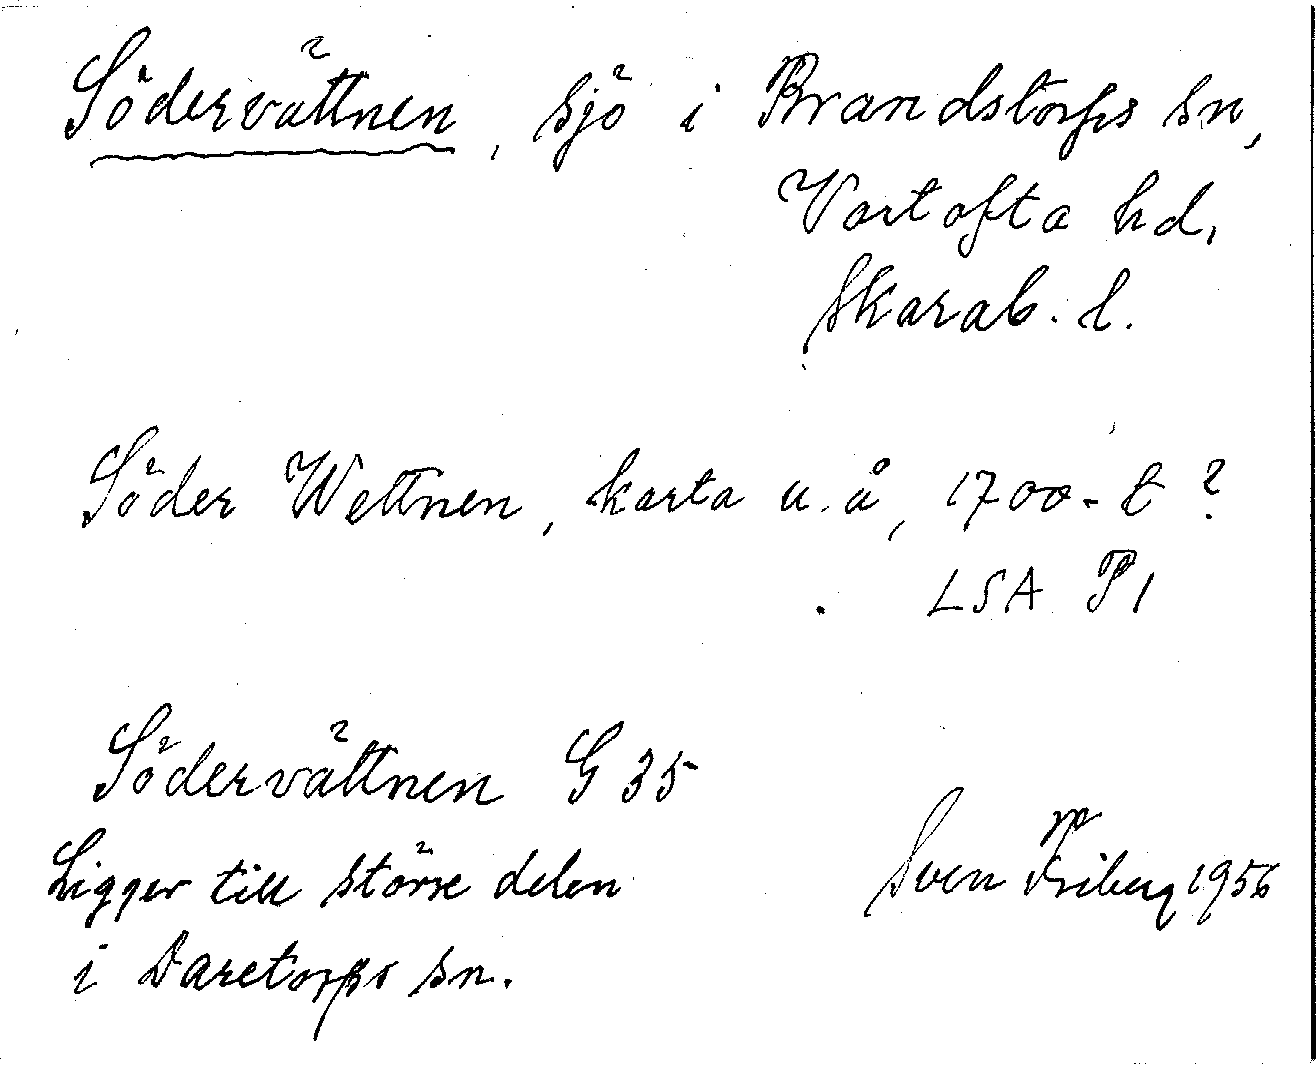 Södervättnen, sjö i Brandstorps sn,
Vartofta hd,
Skarab. l.
Söder Wettnen, karta u. å, 1700-t ?
LSA P1
Södervättnen G 35
Ligger till större delen
i Daretorps sn.
Sven Friberg 1956